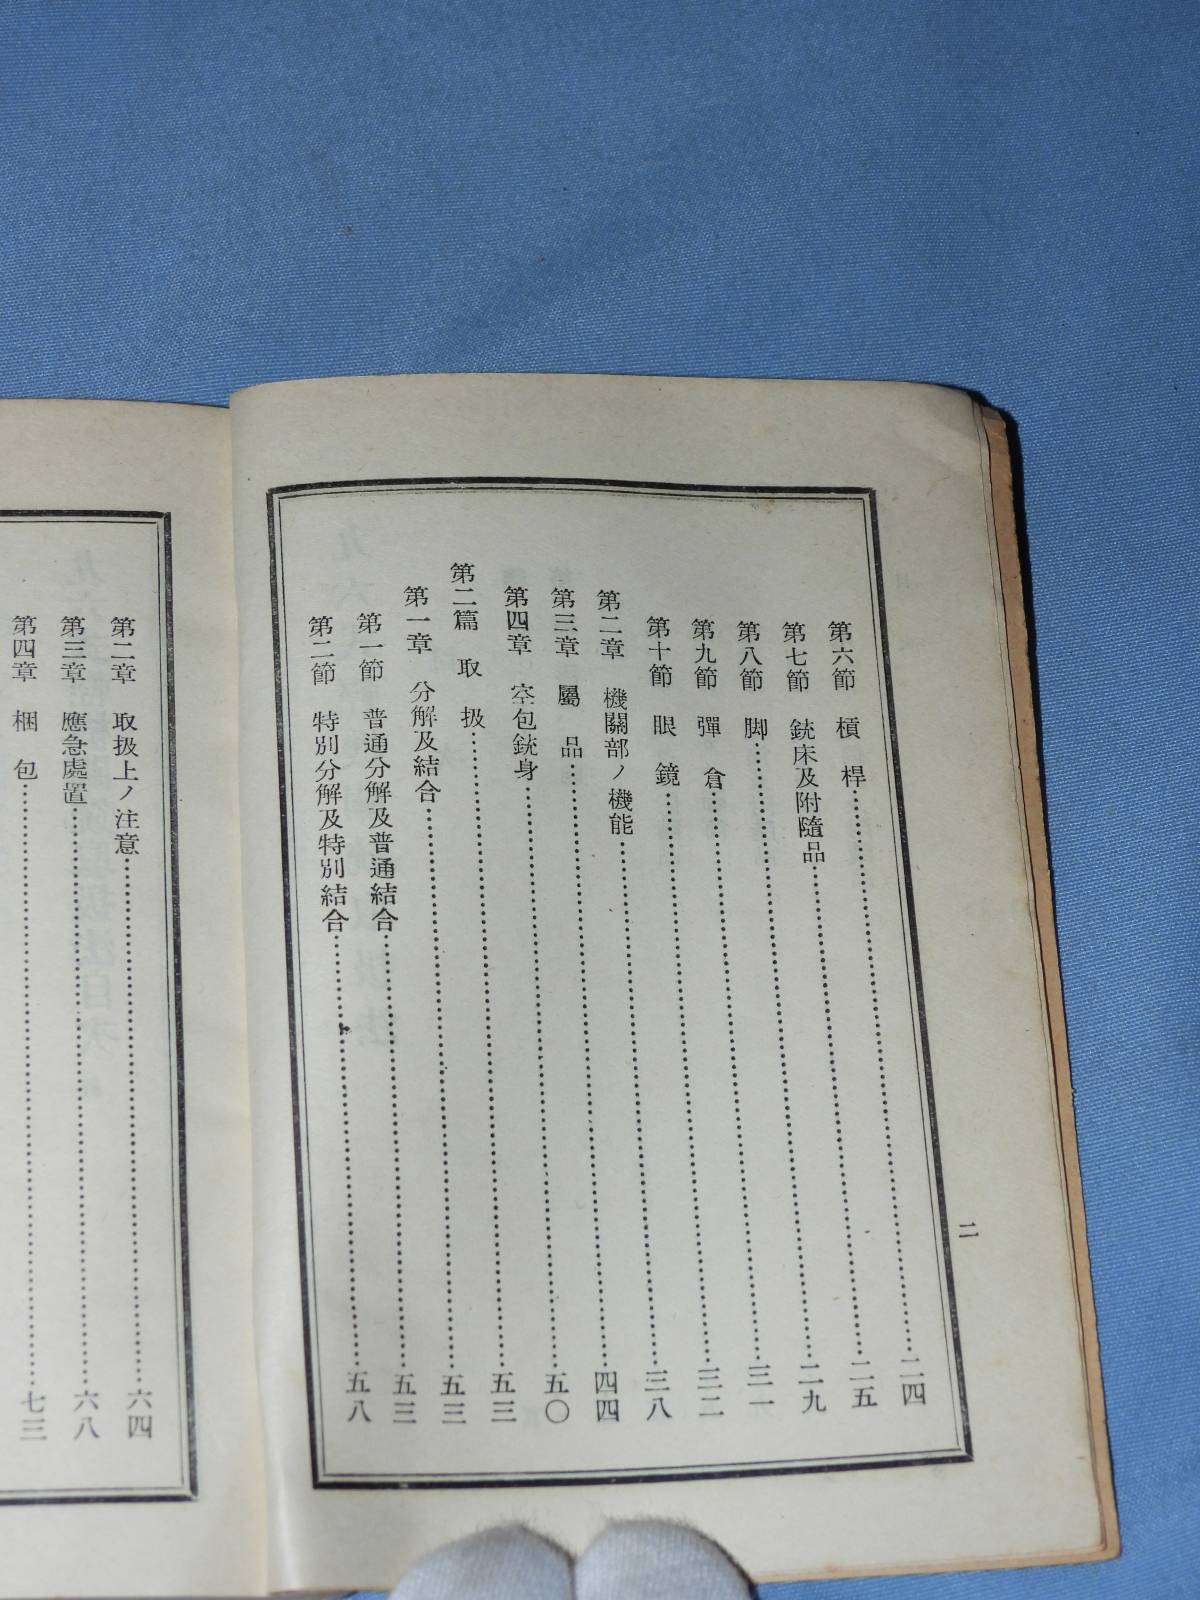 二
第六節 槓桿……二四
第七節 銃床及附隨品……二五
第八節 脚……二九
第九節 彈倉……三一
第十節 眼鏡……三二
第二章 機關部ノ機能……三八
第三章 屬品……四四
第四章 空包銃身……五〇
第二篇 取扱……五三
第一章 分解及結合……五三
第一節 普通分解及普通結合……五三
第二節 特別分解及特別結合……五八
第二章 取扱上ノ注意……六四
第三章 應急處置……六八
第四章 梱包……七三